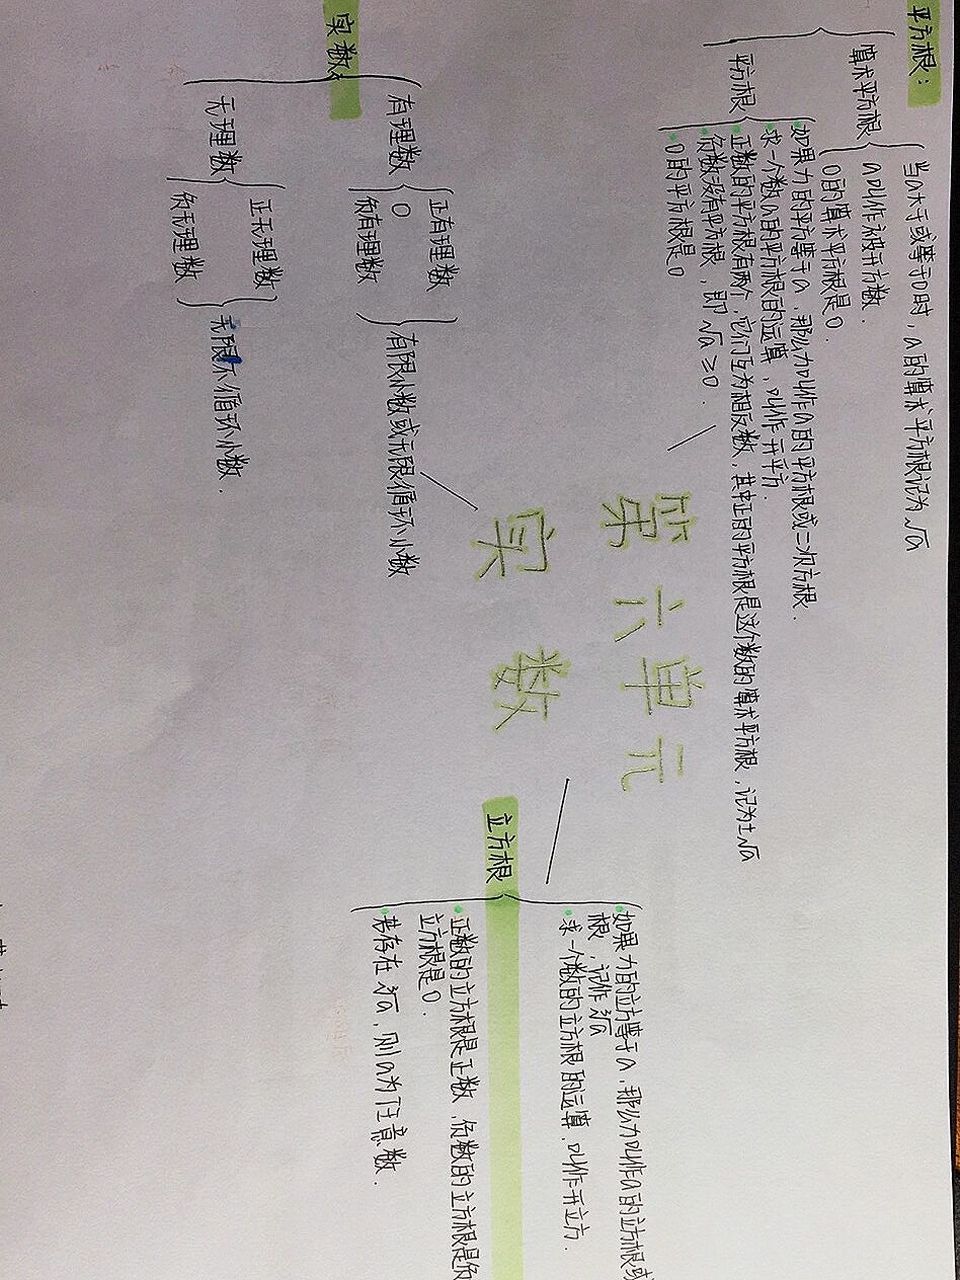 平方根：
算术平方根
当a大于或等于0时，a的算术平方根记为√a
a叫作被开方数.
0的算术平方根是0.
平方根
如果力的平方等于a，那么力叫作a的平方根或二次方根.
求一个数a的平方根的运算，叫作开平方.
正数的平方根有两个，它们互为相反数，其中正的平方根是这个数的算术平方根，记为±√a
负数没有平方根，即√a≥0.
0的平方根是0
第六单元
实数
实数
有理数
正有理数
0
负有理数
有限小数或无限循环小数
无理数
正无理数
负无理数
无限不循环小数.
立方根
如果力的立方等于a，那么力叫作a的立方根或
根，记作∛a
求一个数的立方根的运算，叫作开立方.
正数的立方根是正数，负数的立方根是负
立方根是0.
若存在∛a，则a为任意数.